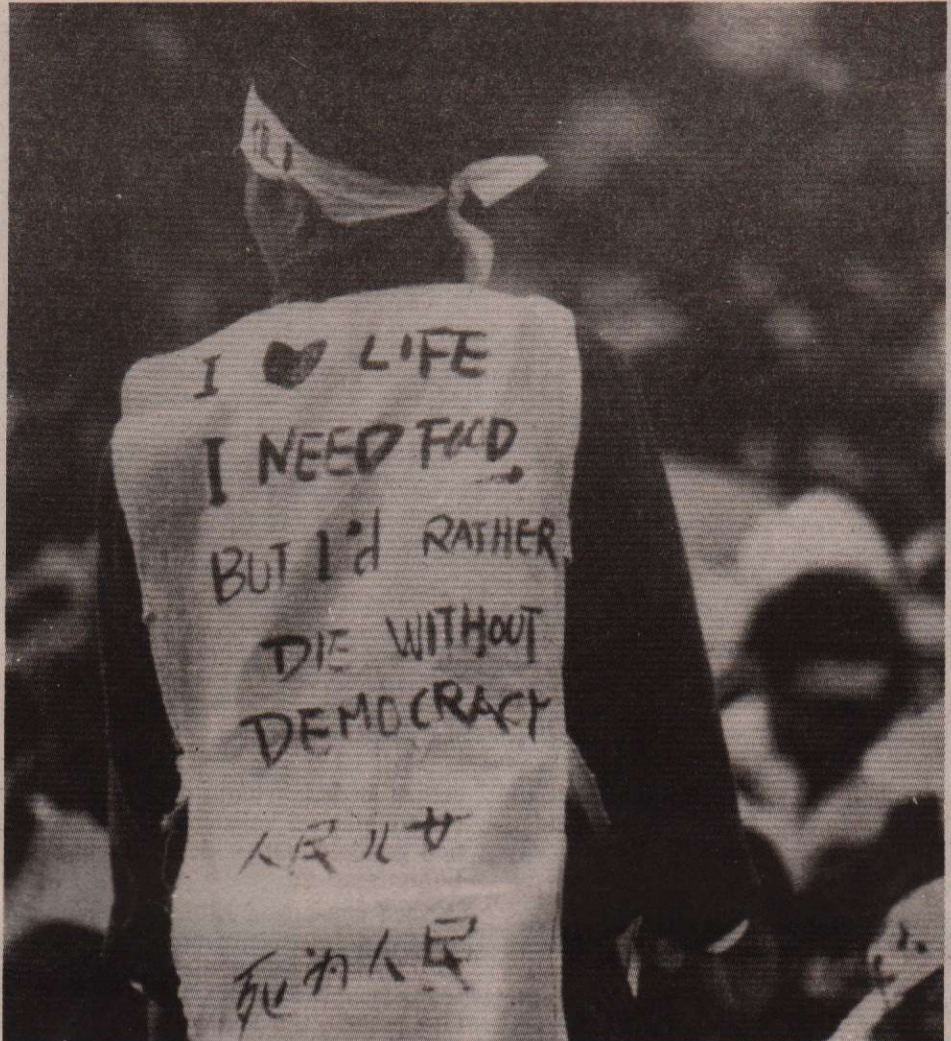 I ♥ LIFE
I NEED FOOD.
BUT I'd RATHER
DIE WITHOUT
DEMOCRACY
人民儿女
死为人民